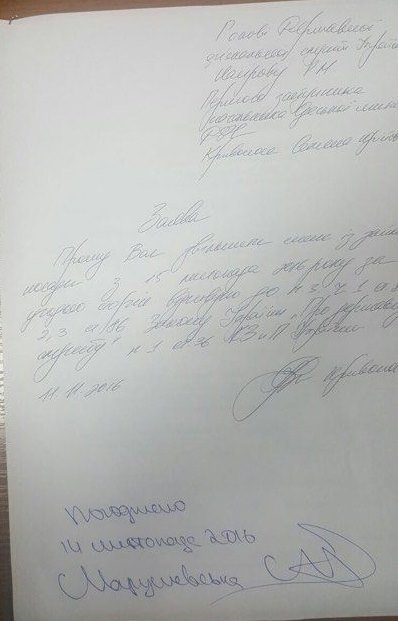 Голові Державної
фіскальної служби Україн
Насірову Р М
Першого заступника
начальника Одеської митни
ДФС
Кривоноса
Заява
Прошу Вас звільнити мене із займ
посади з 15 листопада 2016 року за
угодою сторін відповідно до п 3 ч 1 ст
2, 3 ст 86 Закону України „Про державну
службу" п 1 ст 36 КЗпП України
11.11.2016
Кривоно
Погоджено
14 листопада 2016
Марушевська